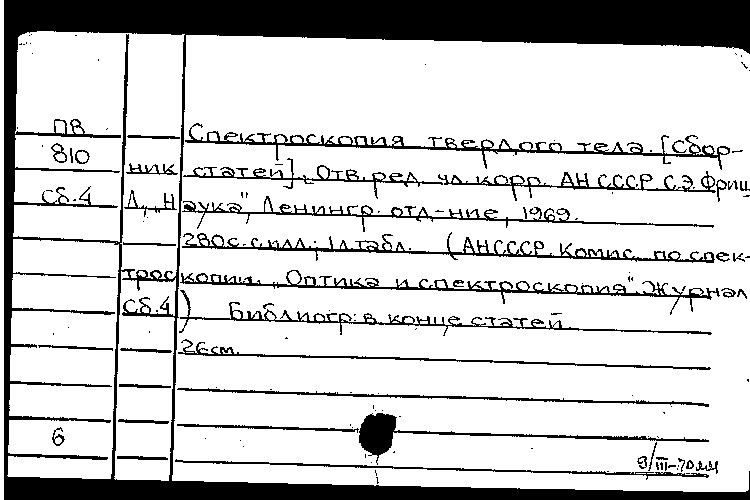 ПВ
810
Сб.4
Спектроскопия твердого тела. [Сбор-
ник статей]. Отв. ред. чл. корр. АН СССР С.Э. Фриш
Л., „Наука", Ленингр. отд-ние, 1969.
280с. с илл.; 1л. табл. (АНСССР. Комис. по спек-
троскопии. „Оптика и спектроскопия". Журнал
Сб.4) Библиогр: в конце статей.
26см.
6
9/III-70